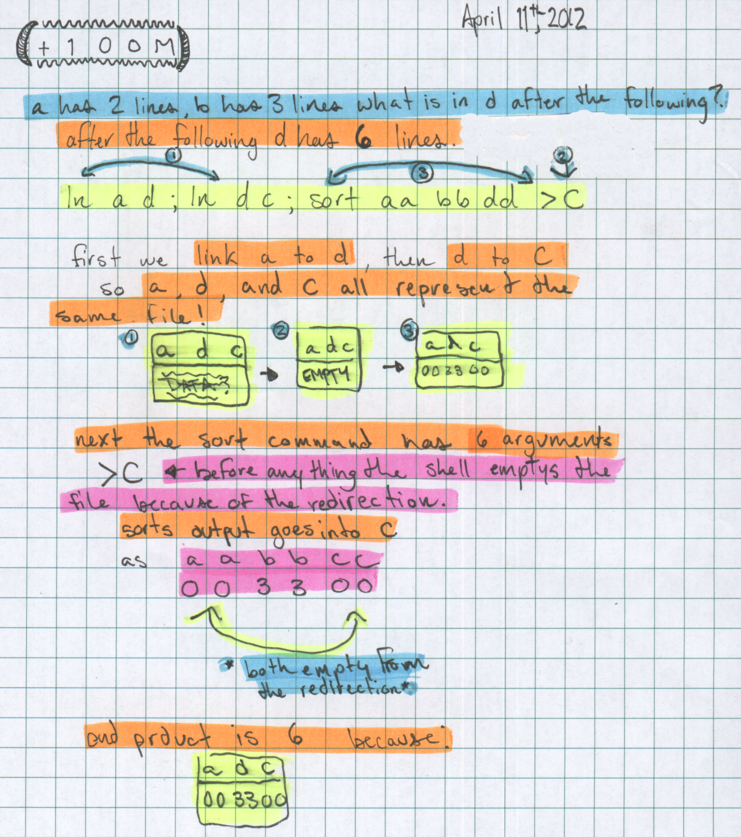 April 11th, 2012
+ 1 0 0 M
a has 2 lines, b has 3 lines what is in d after the following?
after the following d has 6 lines.
① ③ ②
ln a d ; ln d c ; sort aa bb dd > C
first we link a to d, then d to C
so a, d, and C all represent the
same file!
① ② ③
a d c a d c a d c
DATA? EMPTY 003300
next the sort command has 6 arguments
>C ← before anything the shell emptys the
file because of the redirection.
sorts output goes into C
as a a b b c c
0 0 3 3 0 0
* both empty from
the redirection*
end prduct is 6 because:
a d c
003300